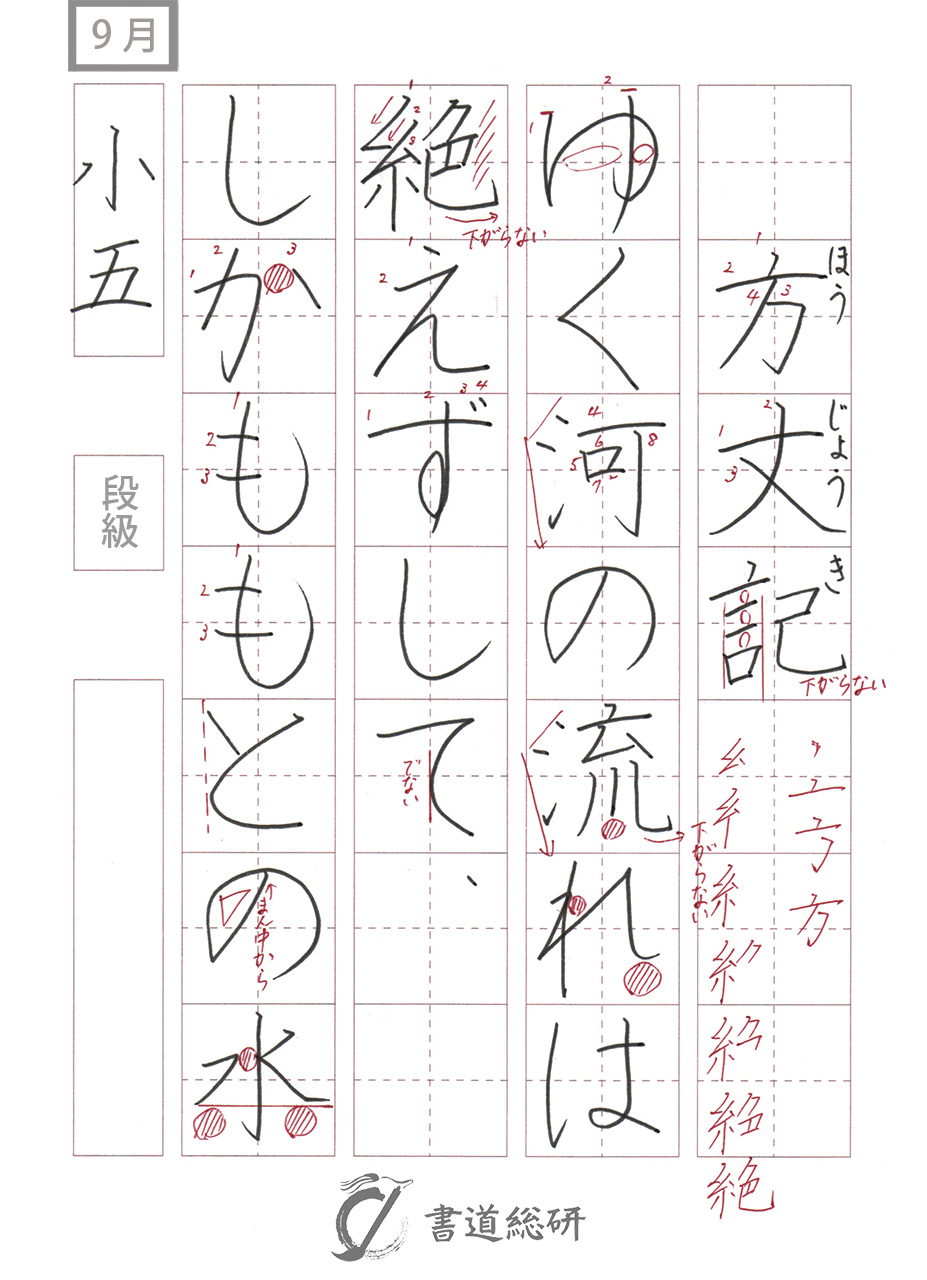 9月
方丈記
ほう
じょう
き
下がらない
ゆく河の流れは
下がらない
絶えずして、
下がらない
でない
しかももとの水
まん中から
小五
段級
書道総研